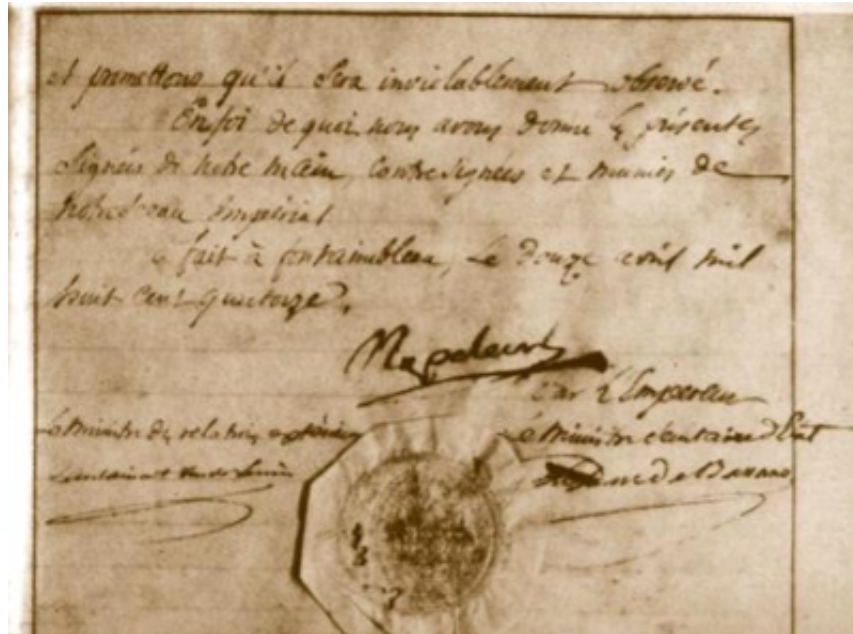 et promettons qu'il sera inviolablement observé.
En foi de quoi, nous avons donné les présentes
signées de notre main, contresignées et munies de
notre sceau impérial
fait à fontainebleau, le douze avril mil
huit cent quatorze.
Napoleon
Par l'Empereur
Le Ministre des relations extérieures
le Ministre Secrétaire d'Etat
Duc de Bassano